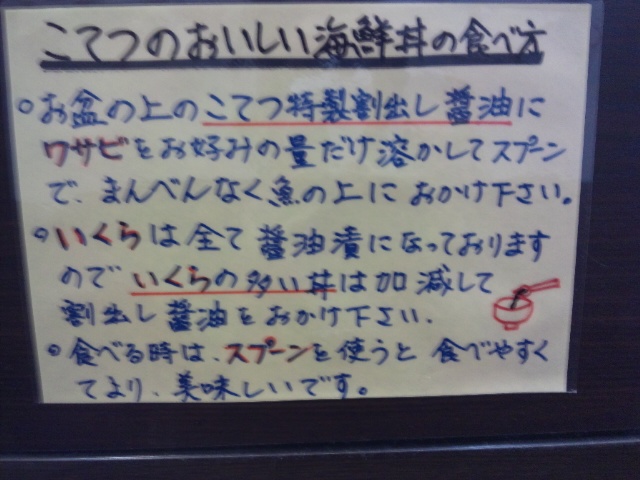 こてつのおいしい海鮮丼の食べ方
○お盆の上のこてつ特製割出し醤油に
ワサビをお好みの量だけ溶かしてスプーン
で、まんべんなく魚の上に おかけ下さい。
○いくらは全て 醤油漬になっております
ので いくらの多い丼は加減して
割出し醤油をおかけ下さい.
○食べる時は、スプーンを使うと 食べやすく
てより、美味しいです。